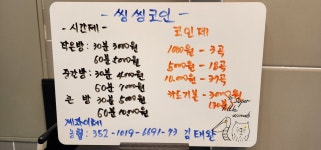 - 씽씽코인 -
- 시간제 -
작은방: 30분 3000원
60분 5000원
중간방: 30분 4000원
60분 7000원
큰 방: 30분 5000원
60분 10000원
계좌이체
농협: 352-1019-6691-73 김태완
코인제
1000원 - 3곡
5000원 - 18곡
10.000원 - 37곡
카드기본 - 3000원